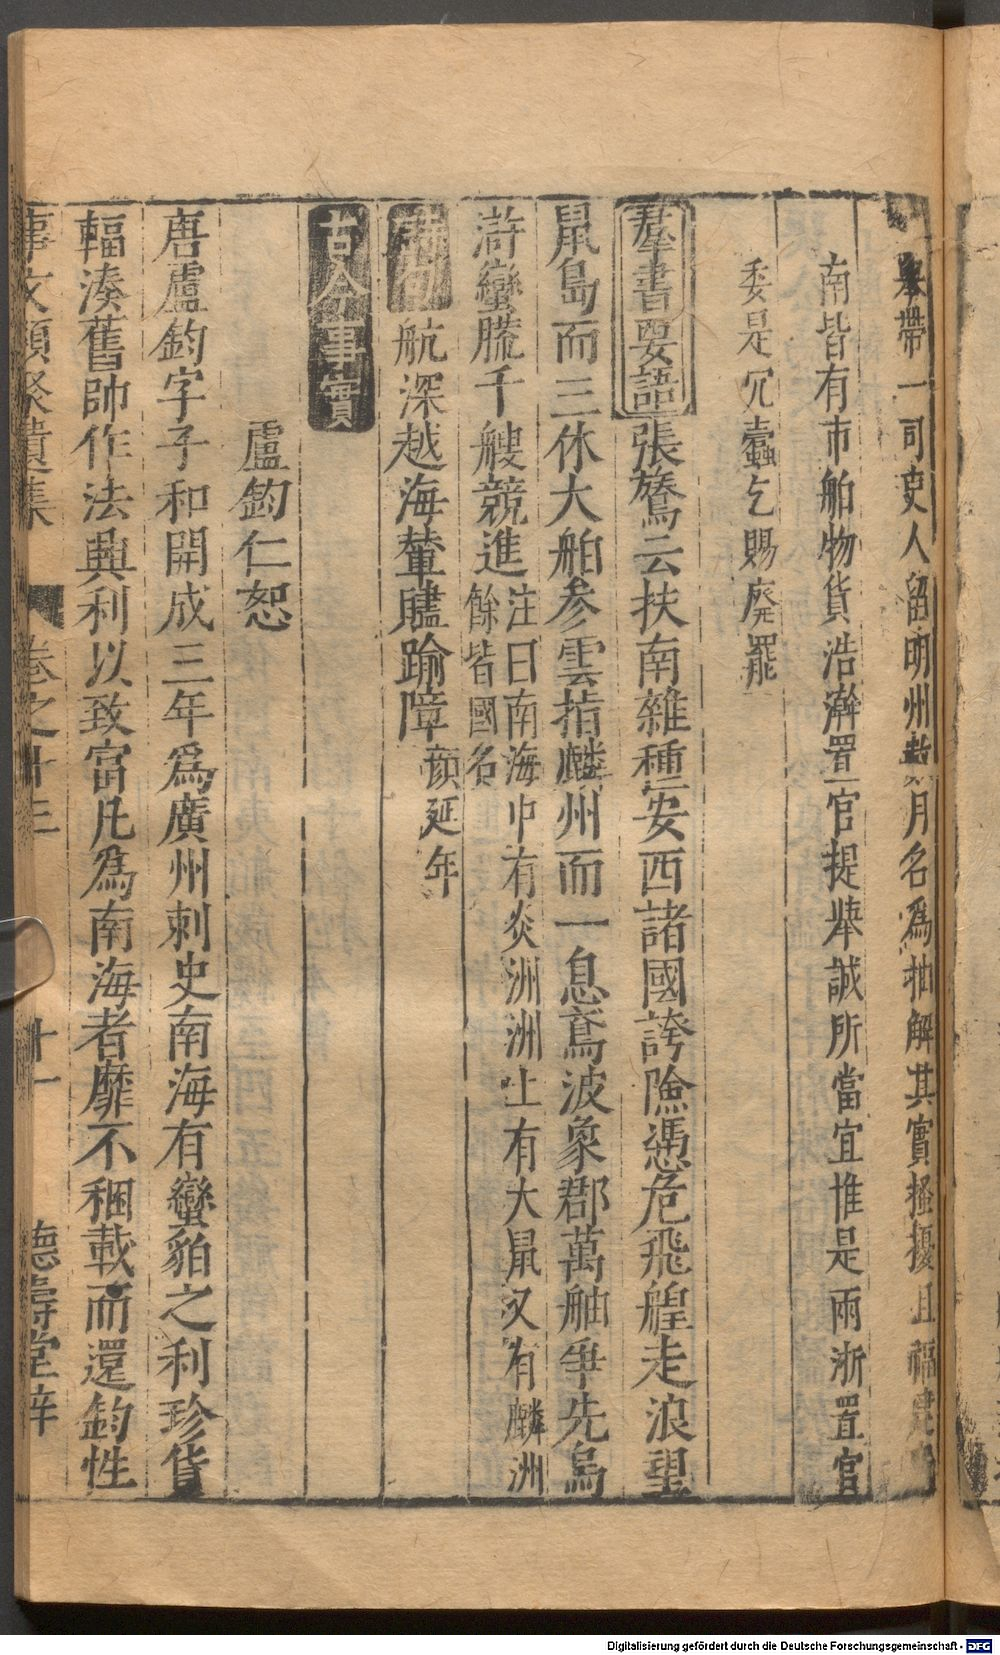 帶一司吏人留明州數月名爲抽解其實搔擾且福建
南皆有市舶物貨浩瀚置官提擧誠所當宜惟是兩浙置官
委是冗蠹乞賜廃罷
羣書要語張鷟云扶南雜種安西諸國誇險憑危飛艎走浪望
鼠島而三休大舶參雲指麟州而一息鳶波象郡萬舳爭先烏
滸蠻𦪭千艘競進
注曰南海中有炎洲洲上有大鼠又有麟洲
餘皆國名
航深越海輦贐踰障顔延年
古今事實
盧鈞仁恕
唐盧鈞字子和開成三年爲廣州刺史南海有蠻貊之利珍貨
輻湊舊帥作法興利以致富凡爲南海者靡不稛載而還鈞性
事文類聚遺集 卷之十三 十一 德壽堂梓
Digitalisierung gefördert durch die Deutsche Forschungsgemeinschaft - DFG